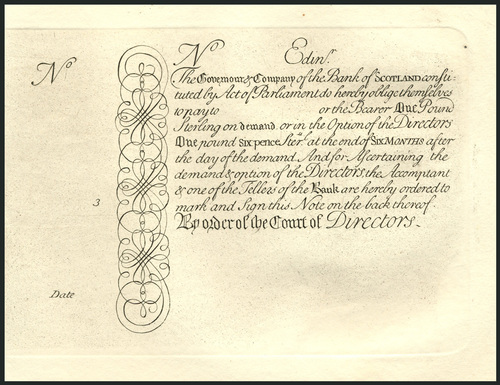 Nº
Nº Edinr.
The Governour & Company of the Bank of SCOTLAND consti:
tuted by Act of Parliament do hereby oblige themselves
to pay to or the Bearer One Pound
Sterling on demand, or in the Option of the Directors
One pound Six pence Sterl. at the end of SIX MONTHS after
the day of the demand. And for Ascertaining the
demand & option of the Directors the Accomptant
& one of the Tellers of the Bank are hereby ordered to
mark and Sign this Note on the back thereof.
By order of the Court of Directors
3
Date